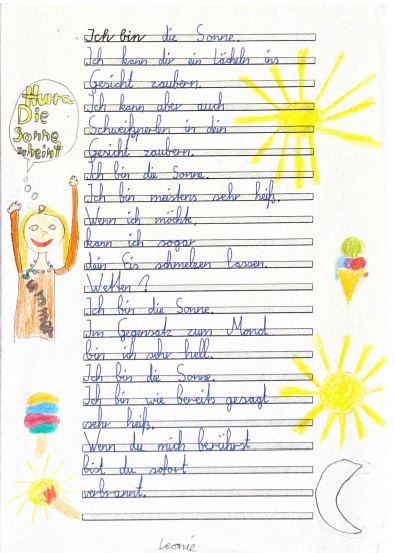 Ich bin die Sonne.
Ich kann dir ein Lächeln ins
Gesicht zaubern.
Ich kann aber auch
Schweißperlen in dein
Gesicht zaubern.
Ich bin die Sonne.
Ich bin meistens sehr heiß.
Wenn ich möchte,
kann ich sogar
dein Eis schmelzen lassen.
Wetten?
Ich bin die Sonne.
Im Gegensatz zum Mond
bin ich sehr hell.
Ich bin die Sonne.
Ich bin wie bereits gesagt
sehr heiß.
Wenn du mich berührst
bist du sofort
verbrannt.
Hurra
Die
Sonne
scheint
Leonie